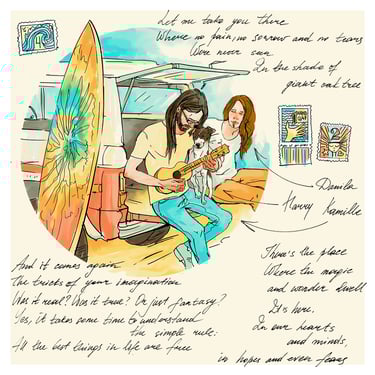 Let me take you there
Where no pain, no sorrow and no tears
Were never seen
In the shade of
giant oak tree
Danila
Harry Kamille
And it comes again
The tricks of your imagination
Was it real? Was it true? Or just fantasy?
Yes, it takes some time to understand
the simple rule:
All the best things in life are free
There's the place
Where the magic
and wonder dwell
It's here,
In our hearts
and minds,
in hopes and even fears